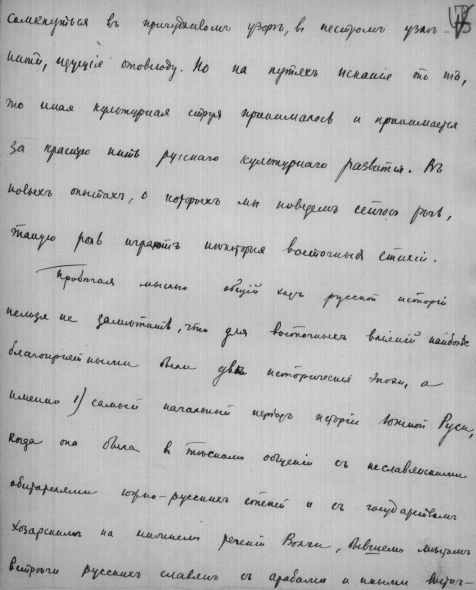 сомкнуться въ причудливомъ узорѣ, въ пестромъ узлѣ
нити, идущіе отовсюду. Но на путяхъ исканіе то та,
то иная культурная струя принималось и принимается
за красную нить русскаго культурнаго развитія. Въ
новыхъ опытахъ, о которыхъ мы поведемъ сейчасъ рѣчь,
такую роль играютъ нѣкоторыя восточныя стихіи.
Пробѣгая мыслью общій ходъ русской исторіи
нельзя не замѣтить, что для восточныхъ вліяній наиболѣе
благопріятными были двѣ историческія эпохи, а
именно 1) самый начальный періодъ исторіи южной Руси,
когда она была въ тѣсномъ общеніи съ неславянскими
обитателями южно-русскихъ степей и съ государствомъ
Хозарскимъ на нижнемъ теченіи Волги, бывшемъ мѣстомъ
встрѣчи русскихъ славянъ съ арабами и иными восточ-